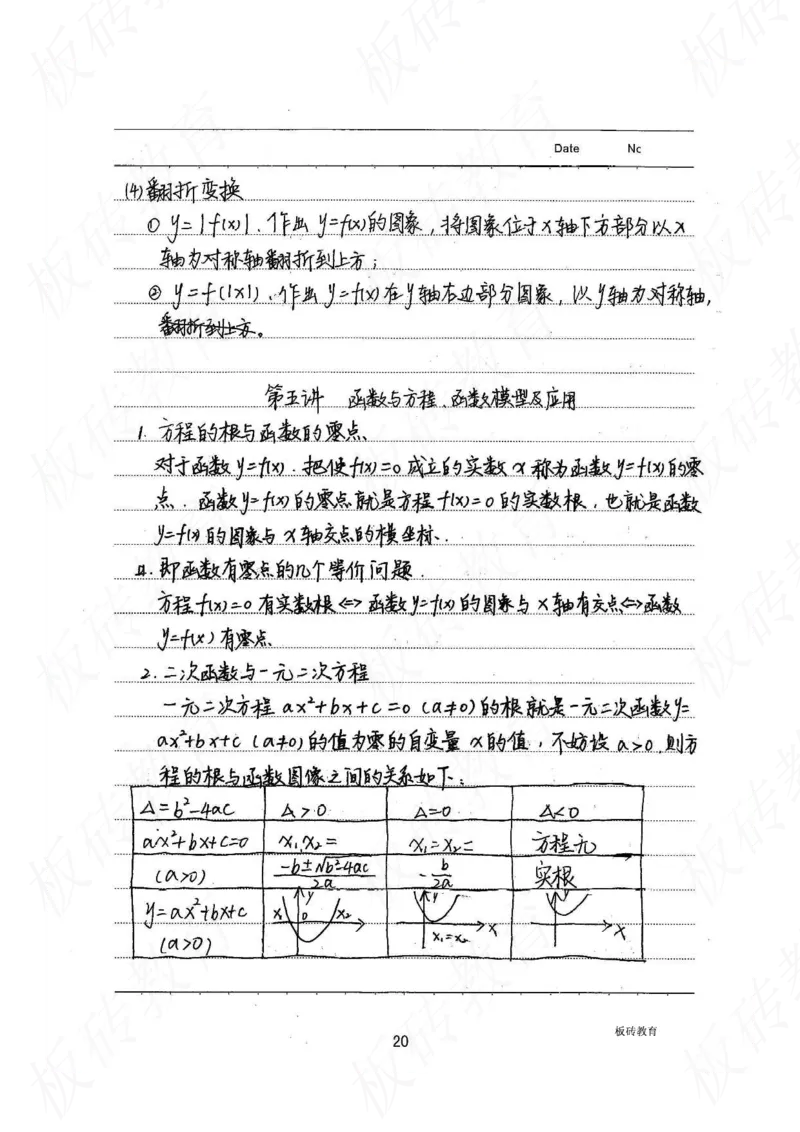 Date No
(4)翻折变换
① y=|f(x)|.作出y=f(x)的图象,将图象位于x轴下方部分以x
轴为对称轴翻折到上方;
② y=f(|x|).作出y=f(x)在y轴右边部分图象,以y轴为对称轴,
翻折到上方。
第五讲 函数与方程、函数模型及应用
1. 方程的根与函数的零点
对于函数y=f(x).把使f(x)=0成立的实数x称为函数y=f(x)的零
点.函数y=f(x)的零点就是方程f(x)=0的实数根,也就是函数
y=f(x)的图象与x轴交点的横坐标.
即函数有零点的几个等价问题.
方程f(x)=0有实数根⇔函数y=f(x)的图象与x轴有交点⇔函数
y=f(x)有零点
2. 二次函数与一元二次方程
一元二次方程ax²+bx+c=0(a≠0)的根就是一元二次函数y=
ax²+bx+c(a≠0)的值为零的自变量x的值,不妨设a>0.则方
程的根与函数图像之间的关系如下:
Δ=b²-4ac Δ>0 Δ=0 Δ<0
ax²+bx+c=0 x₁,x₂= x₁=x₂= 方程无
(a>0) (-b±√b²-4ac)/2a -b/2a 实根
y=ax²+bx+c x y 0 x₂ y x y x
(a>0) x₁=x₂
20
板砖教育